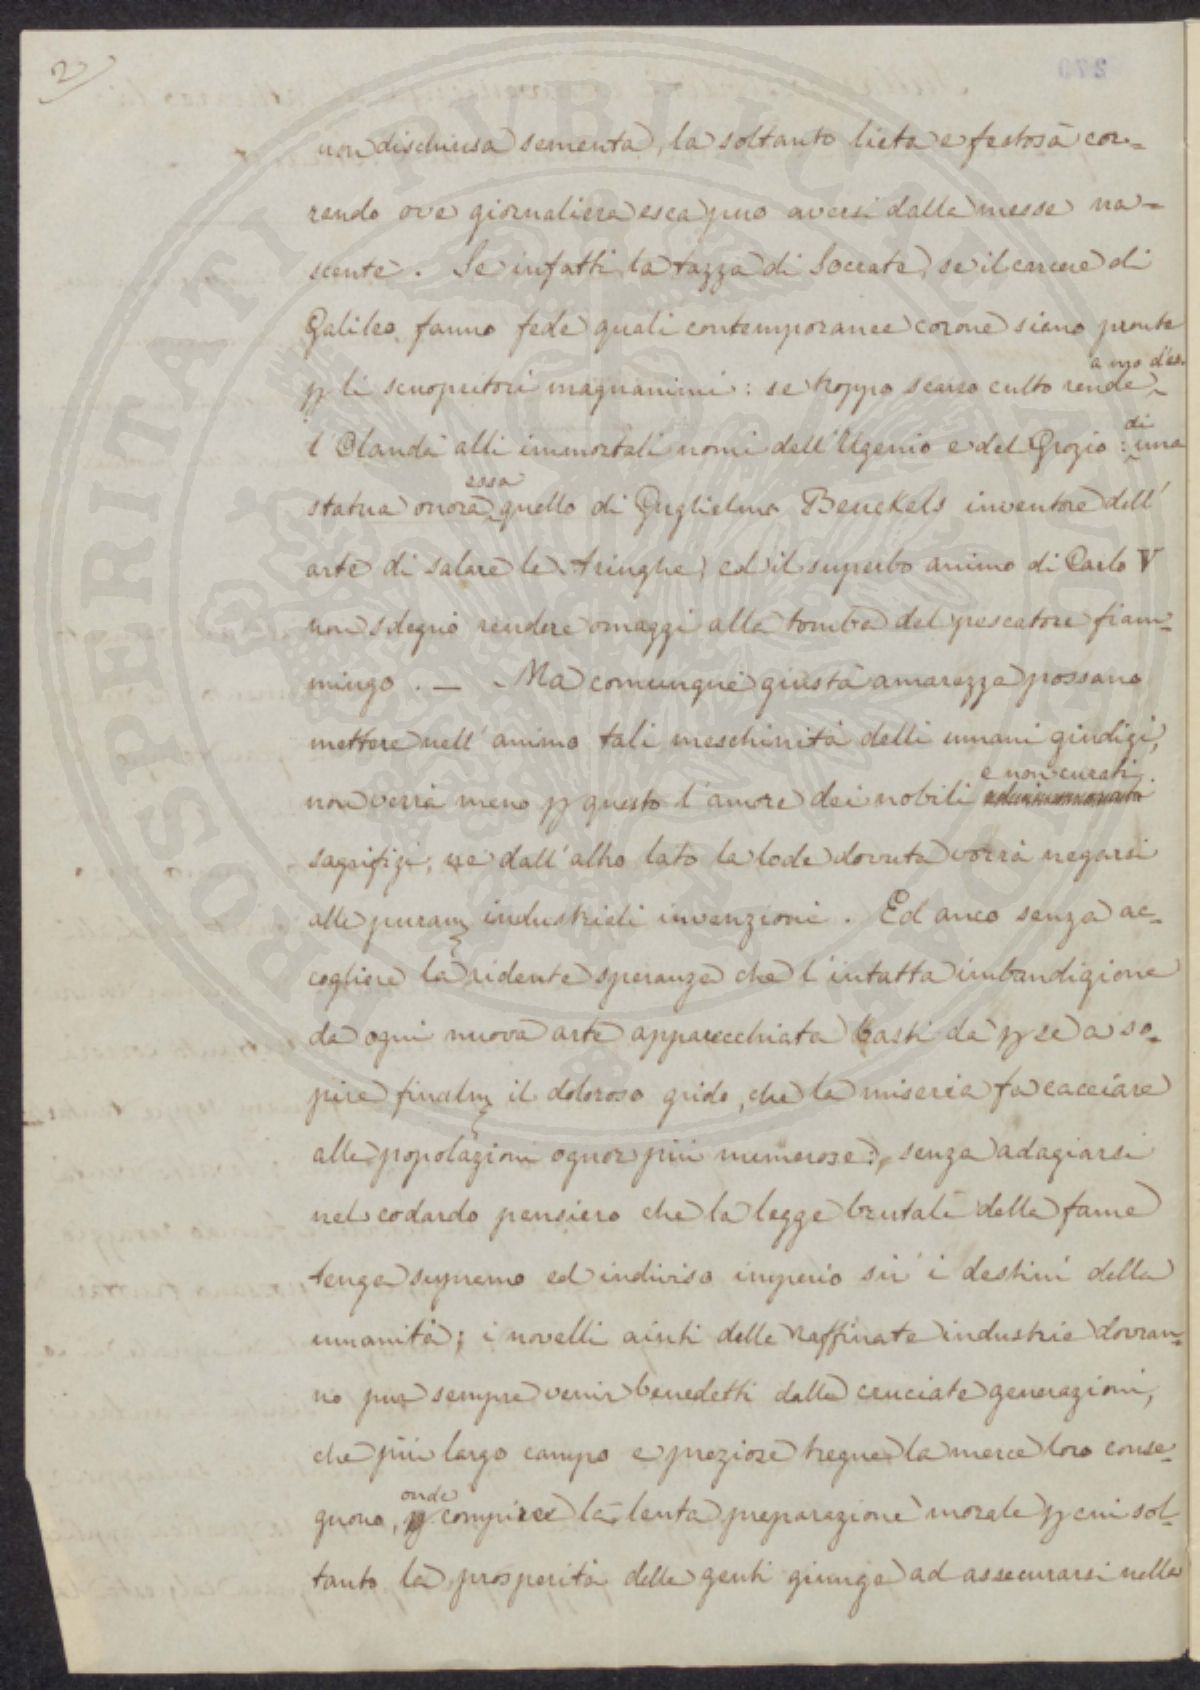 2)
non dischiusa sementa, la soltanto lieta e festosa cor=
rendo ove giornaliera esca può aversi dalla messe na=
scente. Se infatti la tazza di Socrate, se il carcere di
Galileo fanno fede quali contemporanee corone siano pronte
a mo' d'es.
p li scuopritori magnanimi: se troppo scarso culto rende
l'Olanda alli immortali nomi dell'Ugenio e del Grozio: di una
essa
statua onora quello di Guglielmo Beuckels inventore dell'
arte di salare le Aringhe, ed il superbo animo di Carlo V
non sdegnò rendere omaggi alla tomba del pescatore fiam=
mingo. — Ma comunque giusta amarezza possano
mettere nell'animo tali meschinità delli umani giudizi,
e non curati
non verrà meno p questo l'amore dei nobili
sagrifizi, nè dall'altro lato la lode dovuta vorrà negarsi
alle puram industriali invenzioni. Ed anco senza ac=
cogliere la ridente speranza che l'intatta imbandigione
da ogni nuova arte apparecchiata basti da p se a so=
pire finalm il doloroso grido, che la miseria fa cacciare
alle popolazioni ognor più numerose; senza adagiarsi
nel codardo pensiero che la legge brutale della fame
tenga supremo ed indiviso imperio su' i destini della
umanità; i novelli aiuti delle raffinate industrie dovran=
no pur sempre venir benedetti dalle cruciate generazioni,
che più largo campo e preziose tregue la mercè loro conse=
onde
guono, compiere la lenta preparazione morale p cui sol=
tanto la prosperità delle genti giunge ad assecurarsi nella
PROSPERITATI PVBLICAE